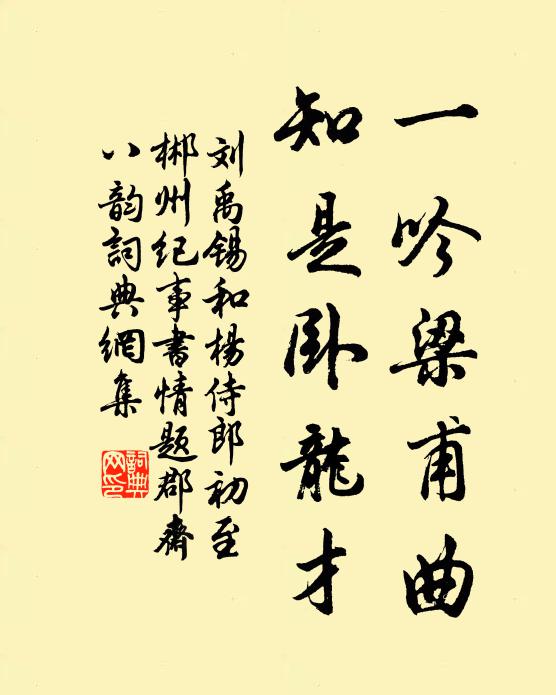 一吟梁甫曲
知是卧龍才
刘禹锡和楊侍郎初至
郴州纪事書情題郡斋
八韵詞典網集
詞典
网印